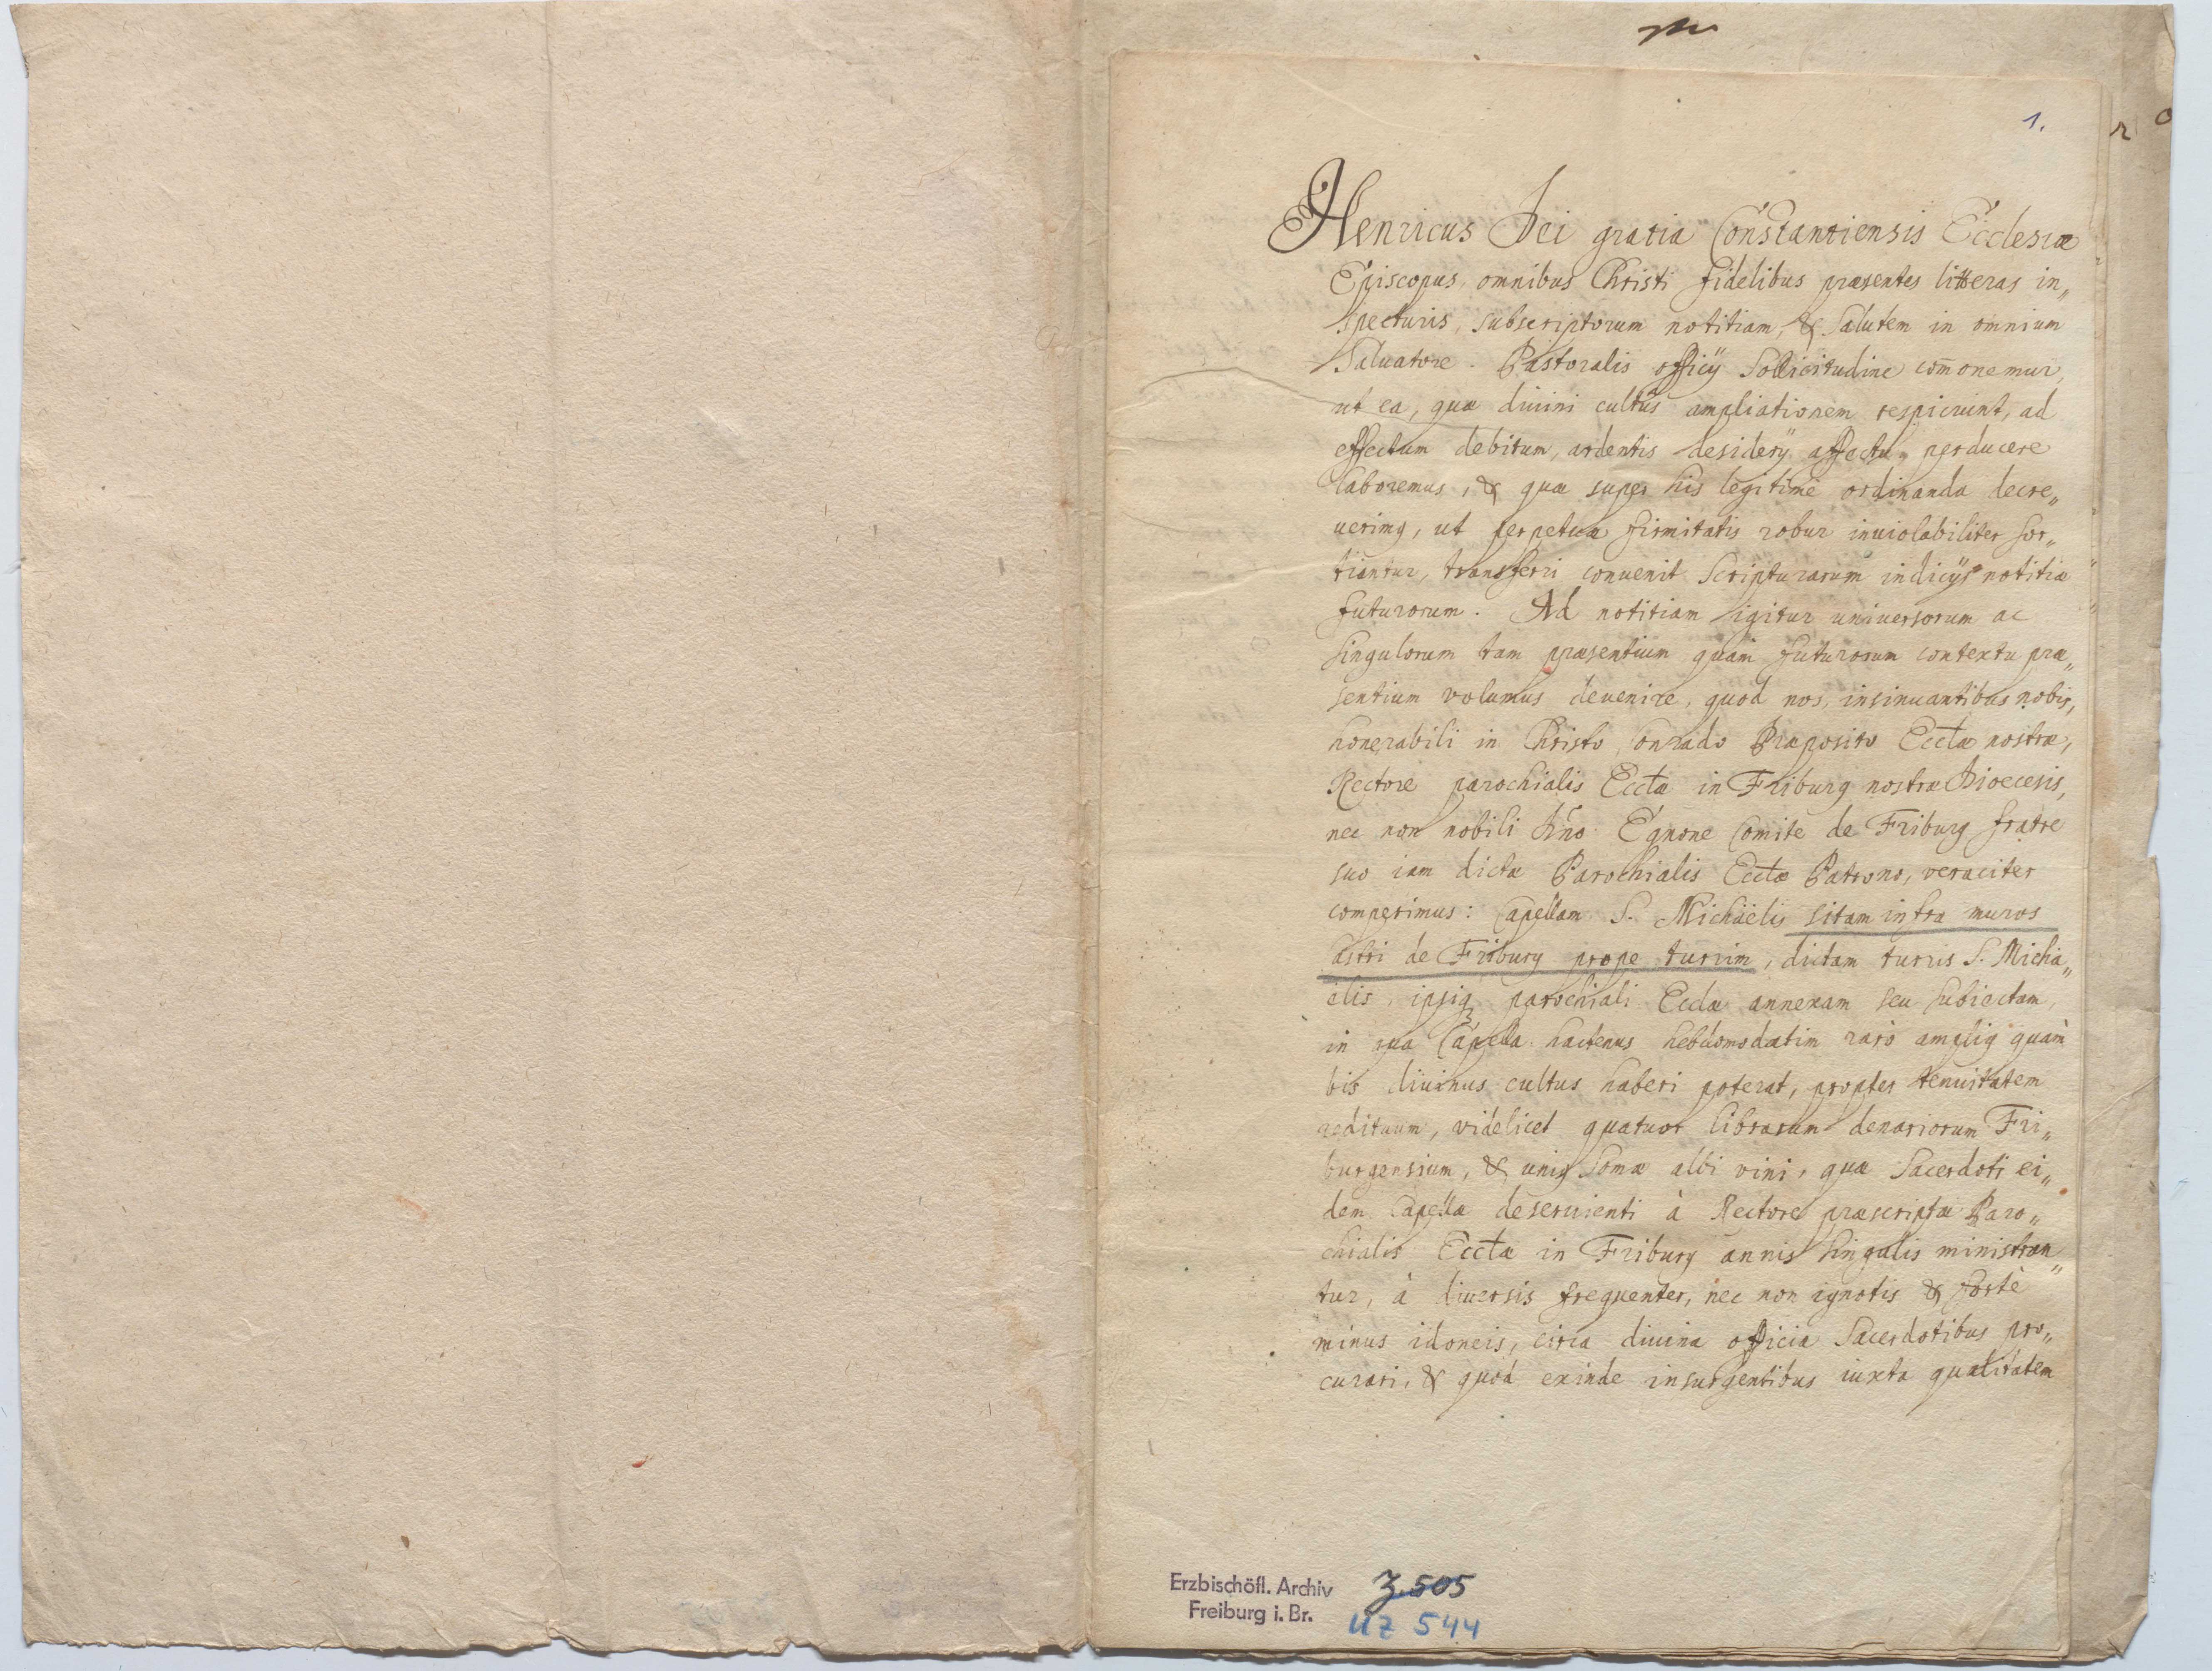 1.
Henricus Dei gratia Constantiensis Ecclesiæ
Episcopus, omnibus Christi fidelibus præsentes litteras in„
specturis, subscriptorum notitiam, & Salutem in omnium
Saluatore. Pastoralis officÿ Sollicitudine com̄onemur,
ut ea, quæ diuini cultûs ampliationem respiciunt, ad
effectum debitum, ardentis desiderÿ affectu, perducere
laboremus, & quæ super his legitimè ordinanda decre„
uerimq, ut perpetuæ firmitatis robur inuiolabiliter sor„
tiantur, transferri conuenit Scripturarum indicÿs notitiæ
futurorum. Ad notitiam igitur uniuersorum ac
singulorum tam præsentium quàm futurorum contextu præ„
sentium volumus deuenire, quod nos, insinuantibus nobis,
honerabili in Christo Conrado Præposito Ecctæ nostræ,
Rectore parochialis Ecctæ in Friburg nostræ Dioecesis,
nec non nobili Dn̄o Egnone Comite de Friburg fratre
suo iam dictæ Parochialis Ecctæ Patrono, veraciter
comperimus: Capellam S. Michäelis sitam infra muros
Castri de Friburg prope turrim, dictam turris S. Micha„
ëlis, ipsiq parochiali Ecclæ annexam seu subiectam,
in qua Capella hactenus hebdomodatim rarò ampliq quàm
bis diuinus cultus haberi poterat, propter tenuitatem
redituum, videlicet quatuor librarum denariorum Fri„
burgensium, & uniq Somæ albi vini, quæ Sacerdoti ei„
dem Capellæ deseruienti à Rectore præscriptæ Paro„
chialis Ecctæ in Friburg annis singulis ministran„
tur, à diuersis frequenter, nec non ignotis & fortè
minus idoneis, circa diuina officia Sacerdotibus pro„
curari, & quòd exinde insurgentibus iuxta qualitatem
Erzbischöfl. Archiv
Freiburg i. Br.
Z. 505
UZ 544